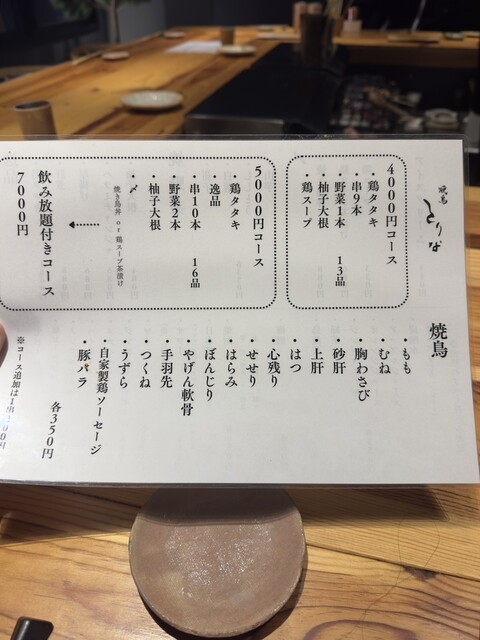 焼鳥
とりな
4000円コース
・鶏タタキ
・串9本
・野菜1本　13品
・柚子大根
・鶏スープ
5000円コース
・鶏タタキ
・逸品
・串10本　16品
・野菜2本
・柚子大根
・〆
焼き鳥丼 or 鶏スープ茶漬け
飲み放題付きコース
7000円
焼鳥
・もも
・むね
・胸わさび
・砂肝
・上肝
・はつ
・心残り
・せせり
・はらみ
・ぼんじり
・やげん軟骨
・手羽先
・つくね
・うずら
・自家製鶏ソーセージ
・豚バラ
各350円
※コース追加は1串